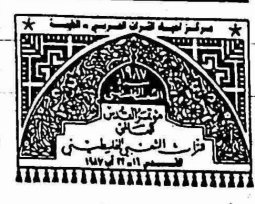 مركز احياء التراث العربي - الطيبة
١٩٨٧
مؤتمر القدس
الثاني
للتراث الشعبي الفلسطيني
القدس ١٦ - ٢٢ آب ١٩٨٧